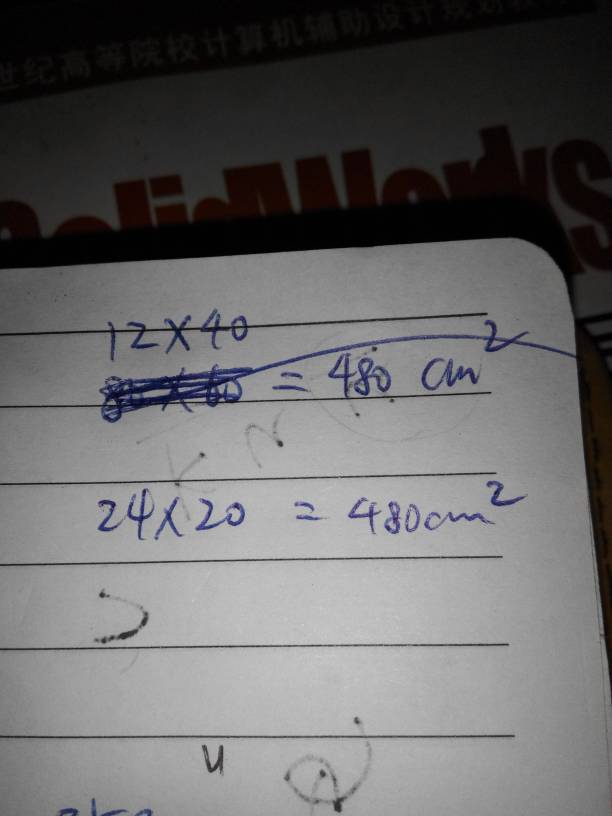 世纪高等院校计算机辅助设计规划教材
SolidWorks
12×40
= 480 cm²
24×20 = 480cm²